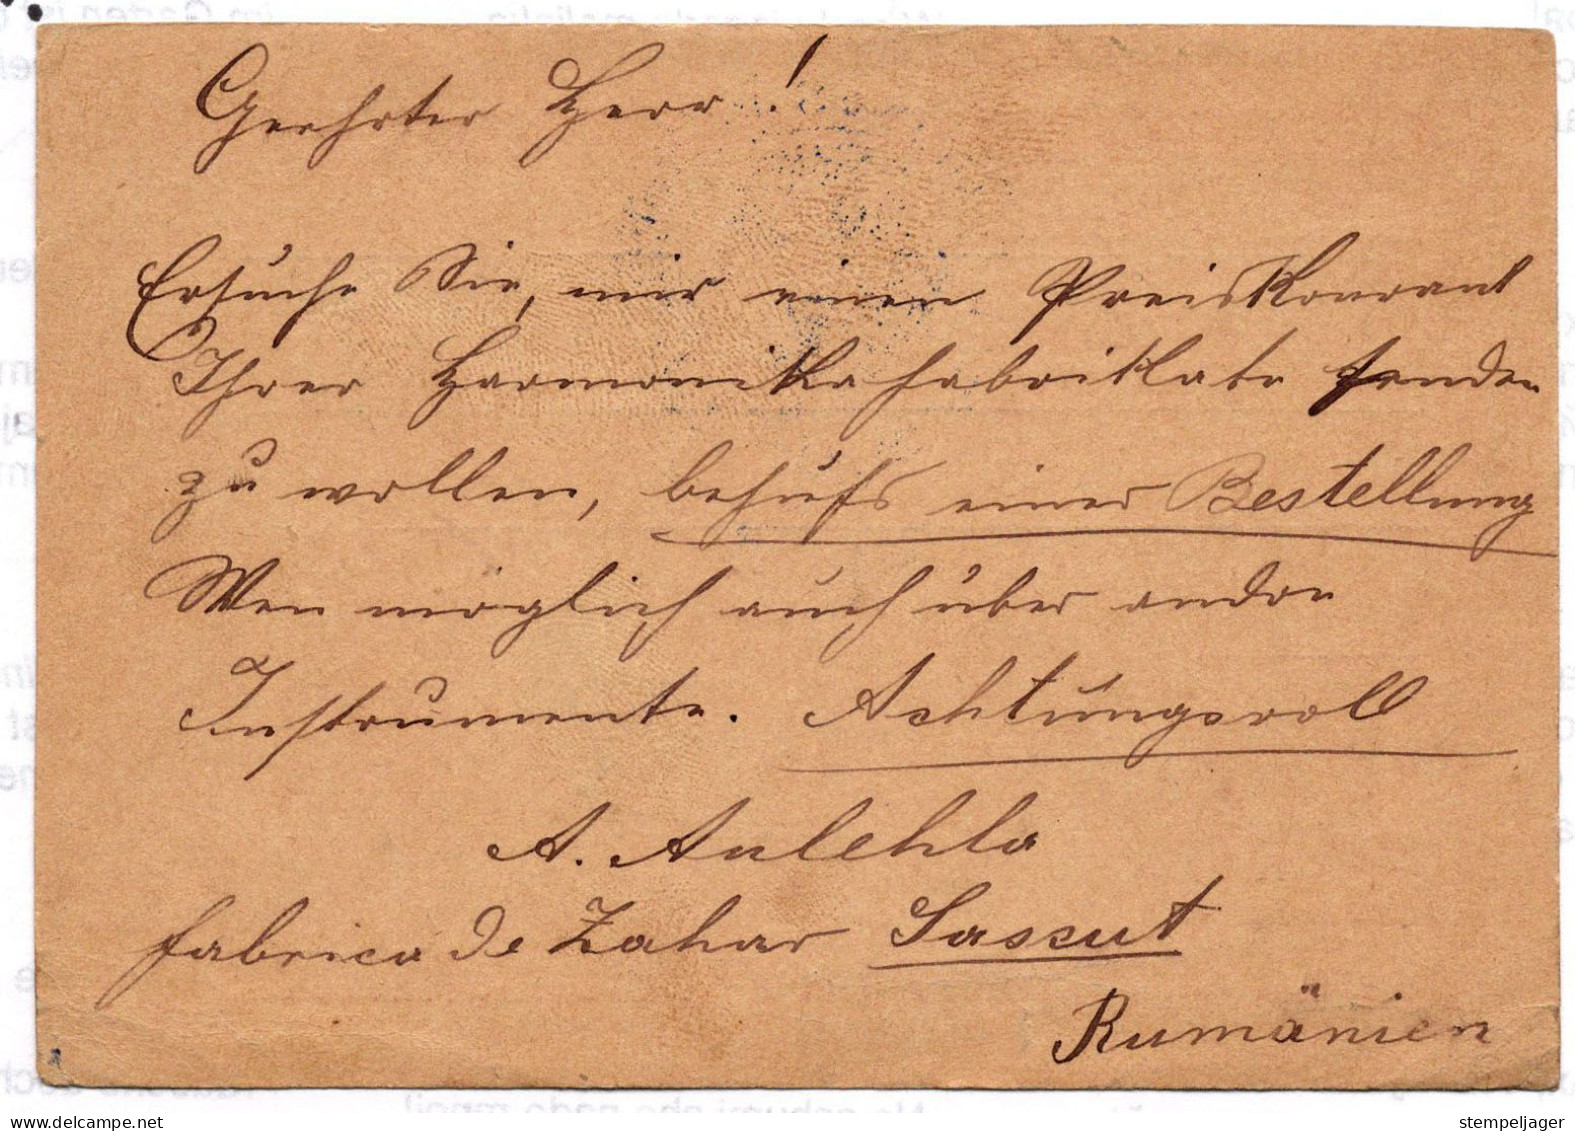 Geehrter Herr!
Ersuche Sie, mir einen Preiskourant
Ihrer Harmonikafabrikate senden
zu wollen, behufs einer Bestellung
Wen möglich auch überander
Instrumente. Achtungsvoll
A. Aulehla
fabrica de Zahar Sascut
Rumänien
www.delcampe.net
stempeljager